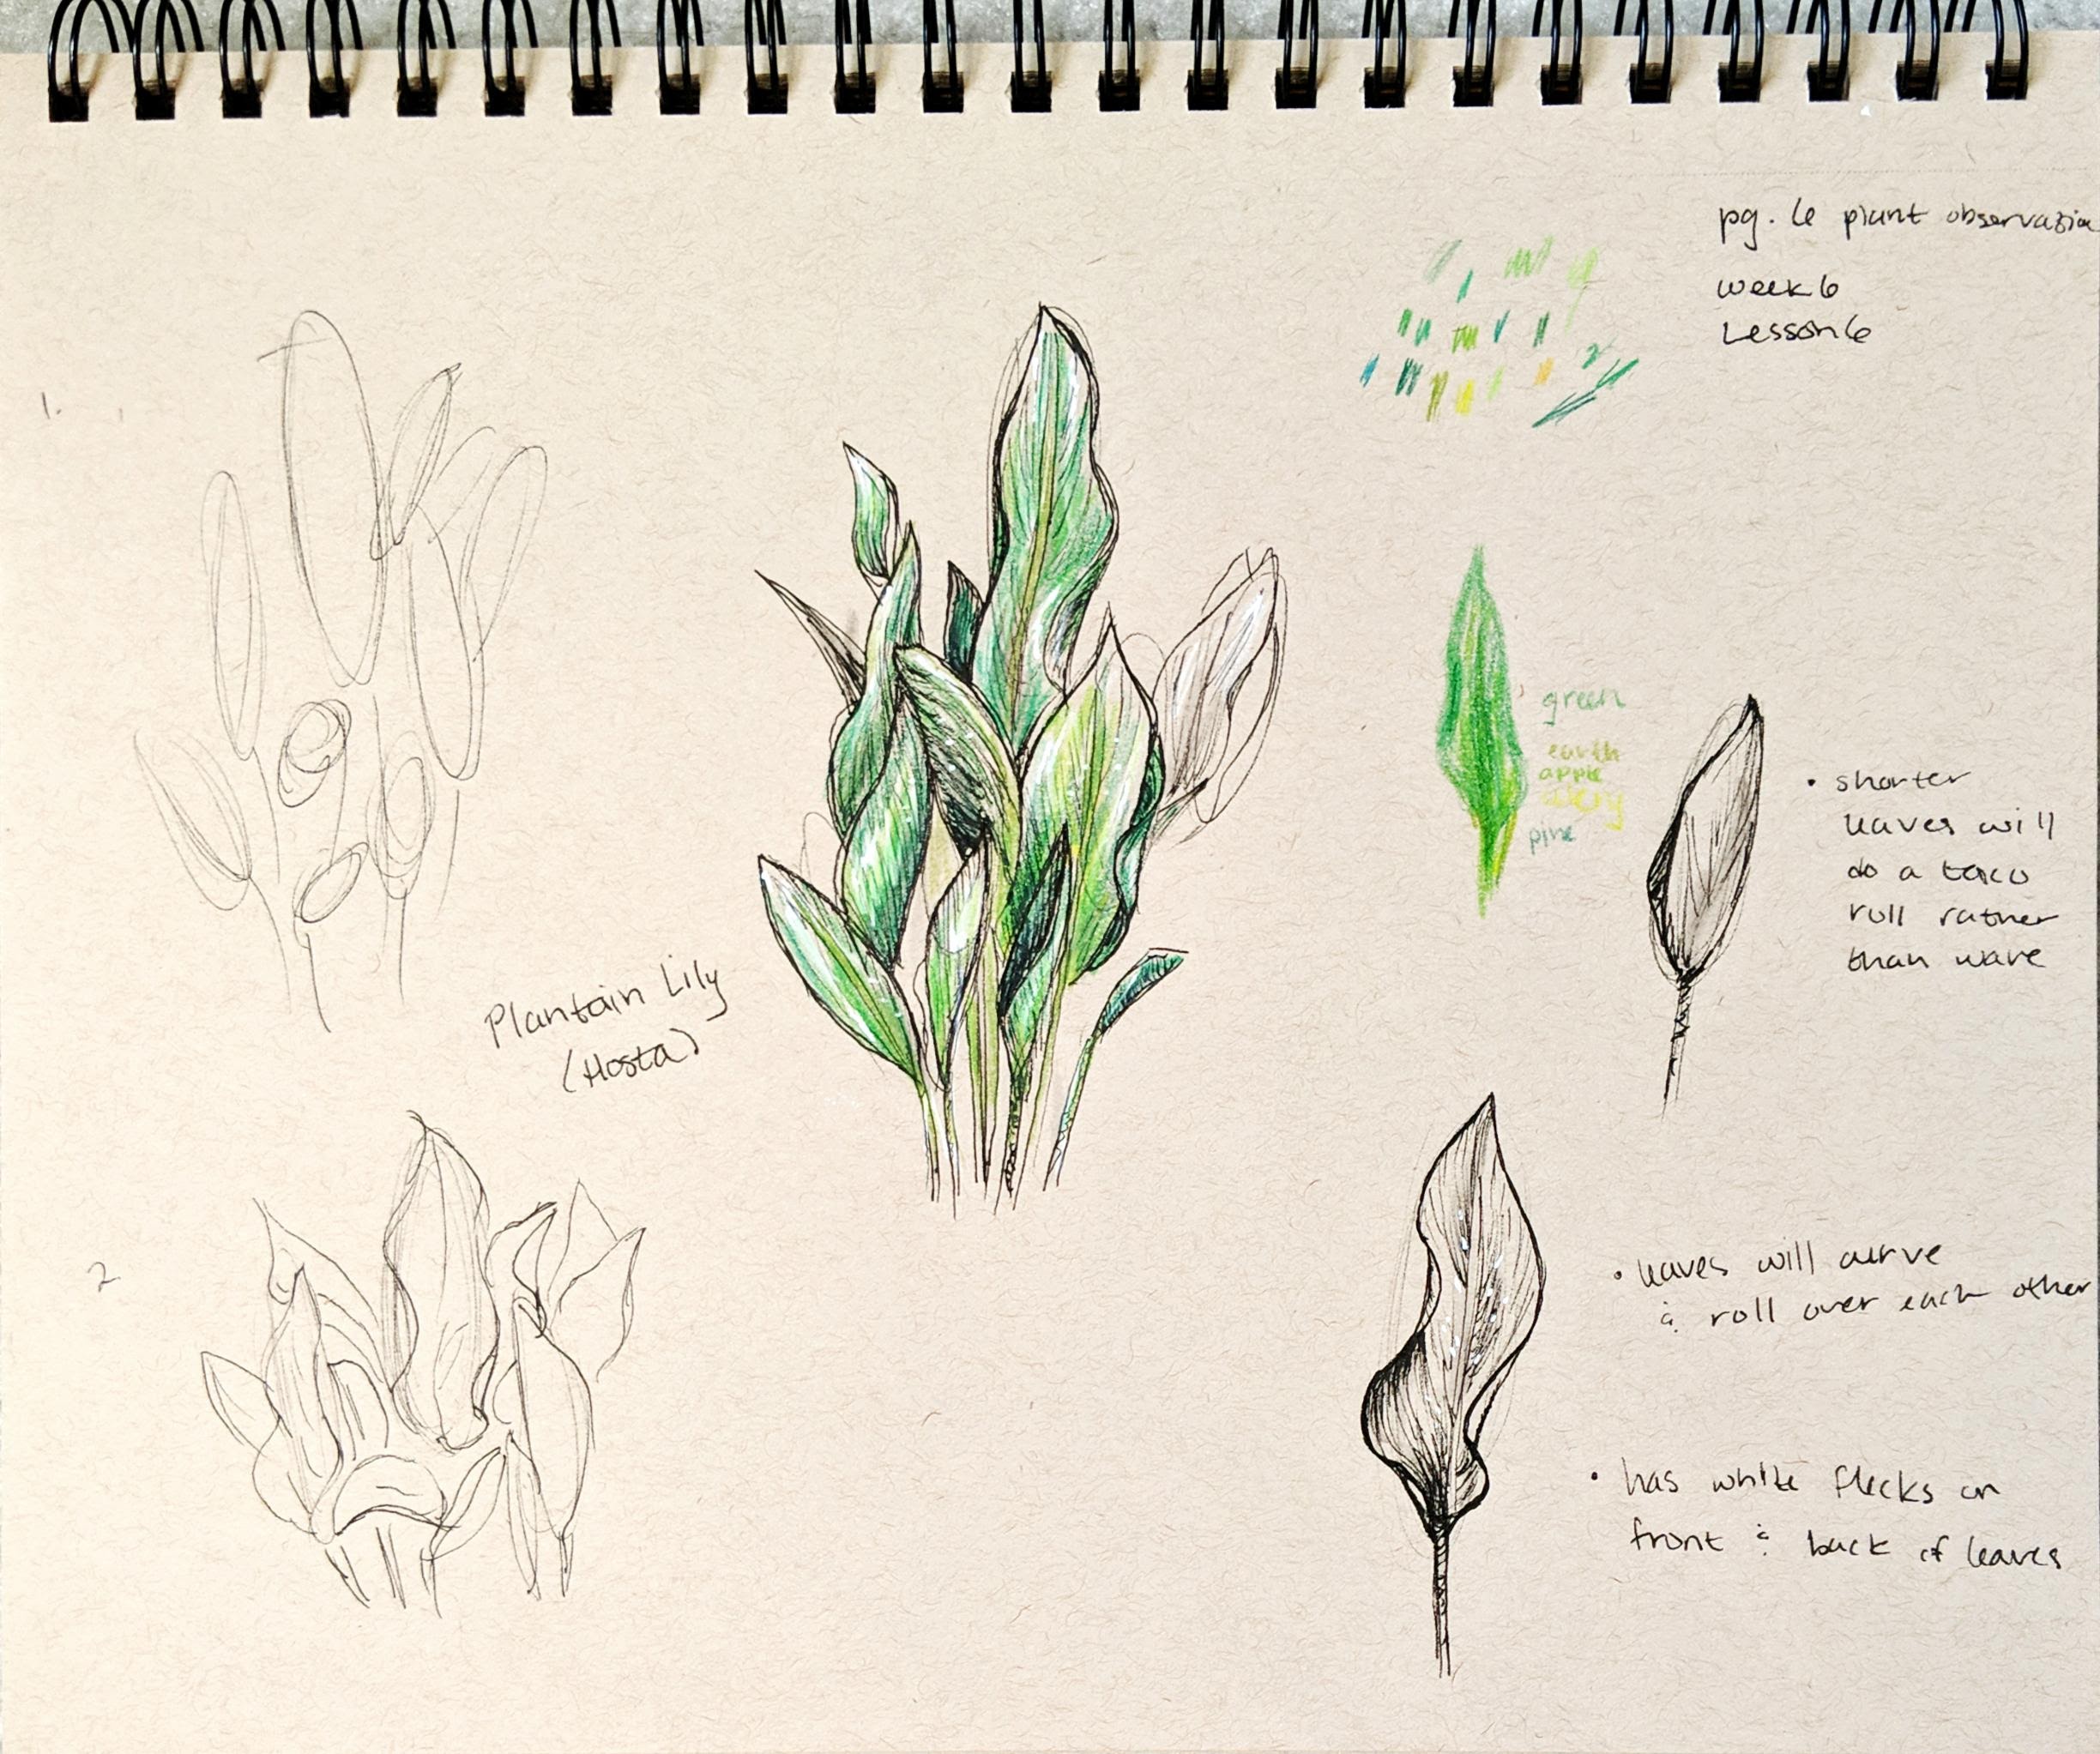 pg. 6 plant observation
week 6
Lesson 6
1.
green
earth
apple
celery
pine
• shorter
leaves will
do a taco
roll rather
than wave
Plantain Lily
(Hosta)
2
• leaves will curve
& roll over each other
• has white flecks on
front & back of leaves